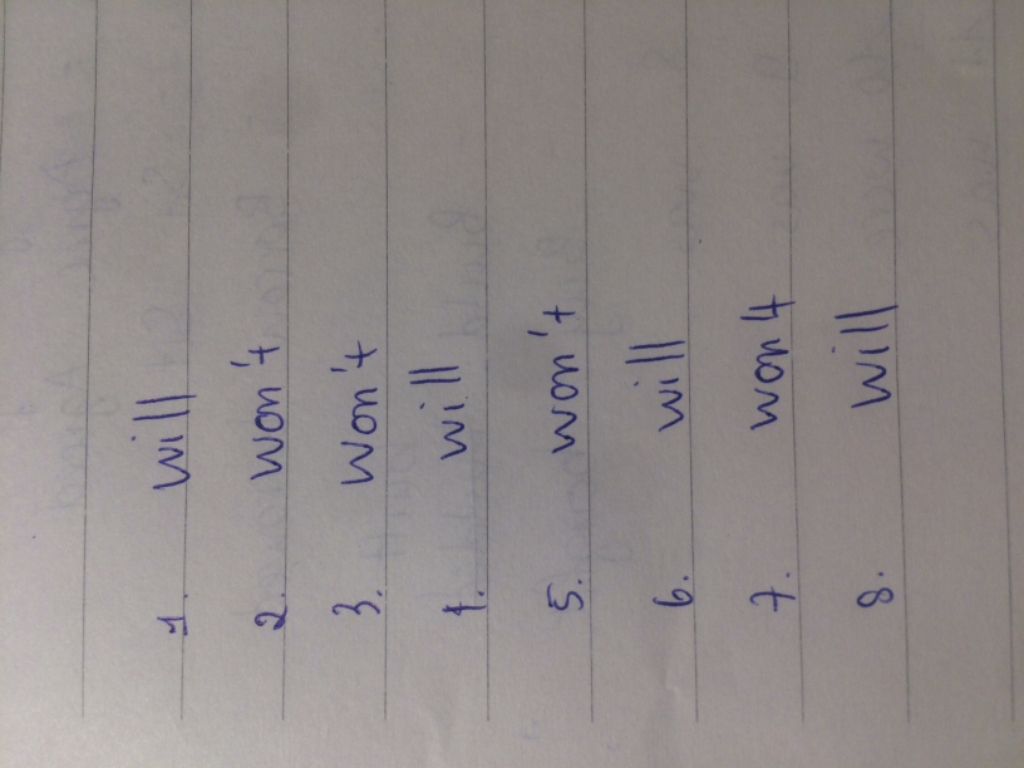 1. will
2. won't
3. won't
4. will
5. won't
6. will
7. won't
8. will